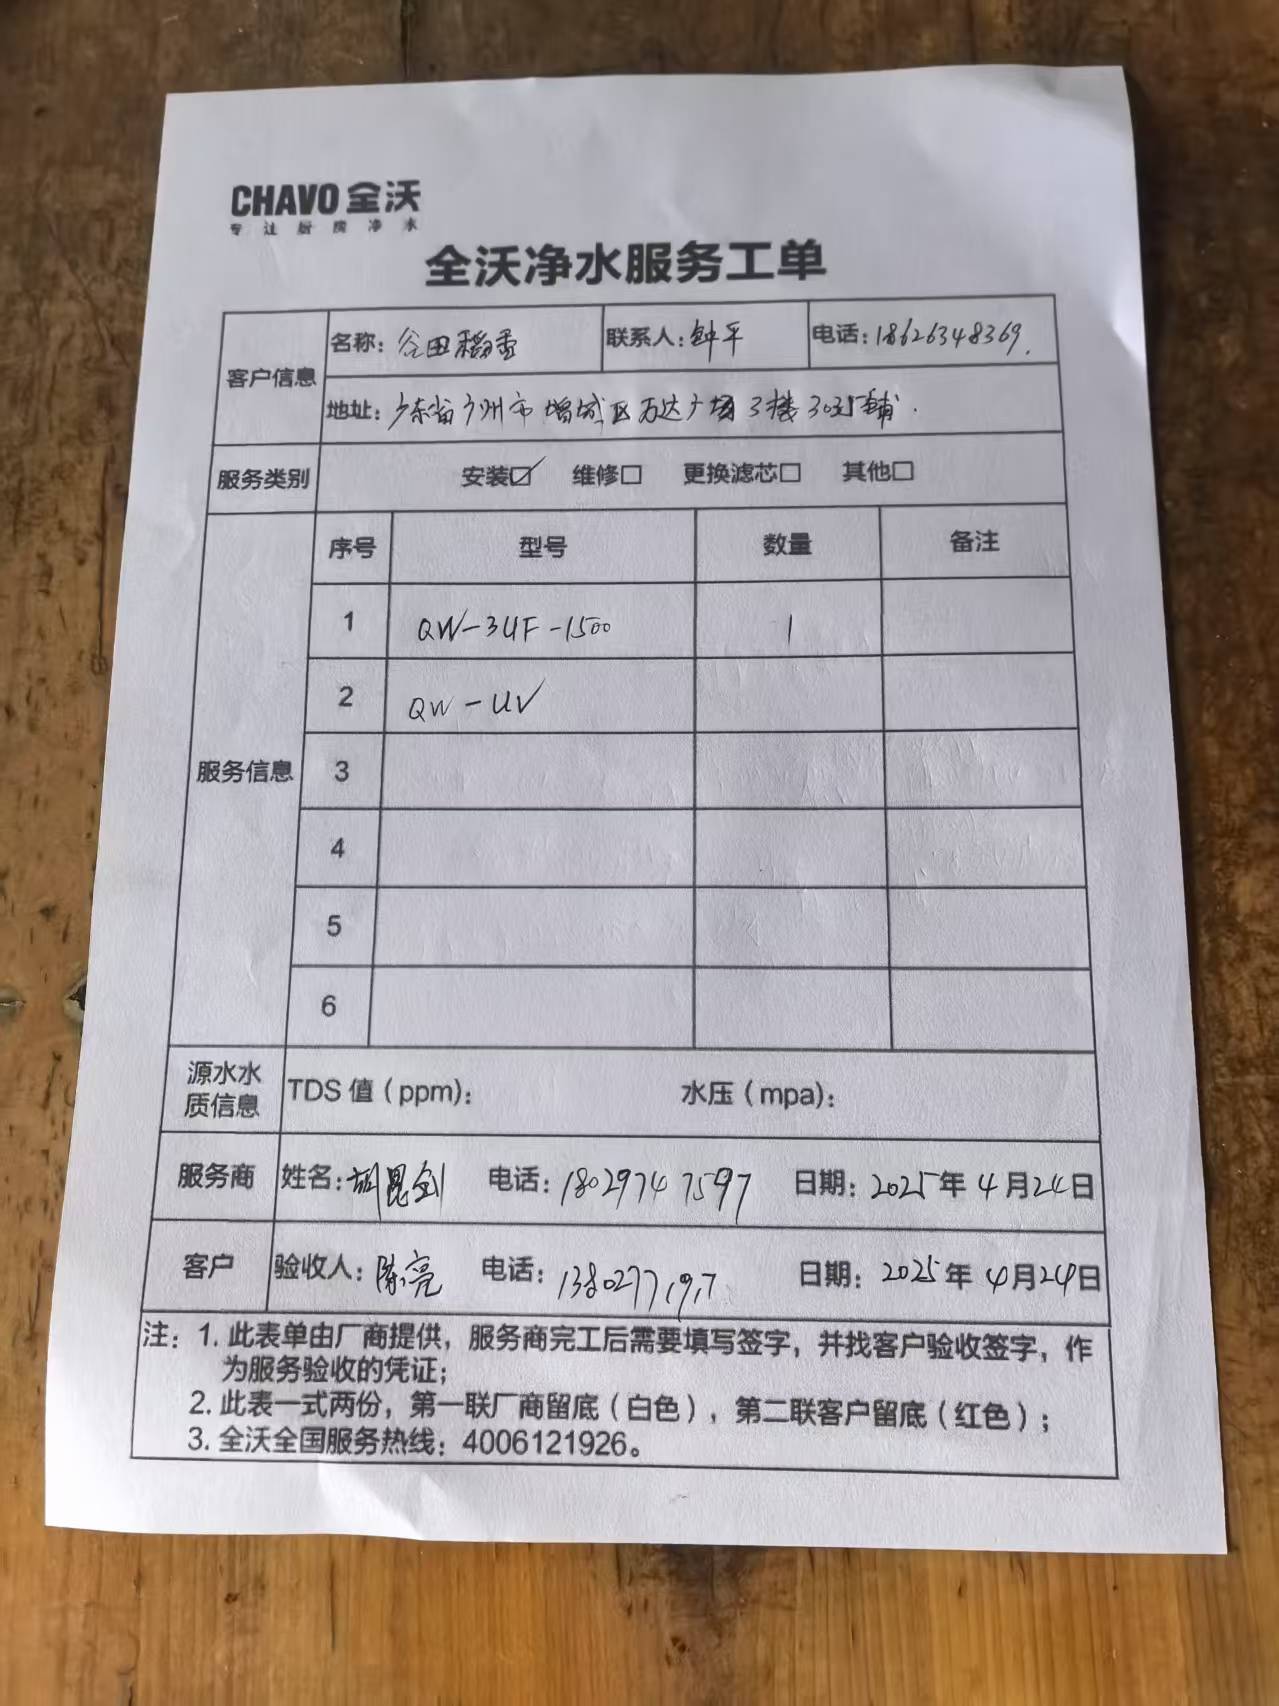 CHAVO 全沃
专注厨房净水
全沃净水服务工单
客户信息 名称：谷田稻香 联系人：钟平 电话：18626348369.
地址：广东省广州市增城区万达广场3楼3025铺.
服务类别 安装☑ 维修□ 更换滤芯□ 其他□
服务信息 序号 型号 数量 备注
1 QW-3UF-1500 1
2 QW-UV
3
4
5
6
源水水质信息 TDS 值（ppm): 水压（mpa):
服务商 姓名:胡昆剑 电话：18029747597 日期：2025年4月24日
客户 验收人：陈亮 电话： 日期：2025年4月24日
注：1. 此表单由厂商提供，服务商完工后需要填写签字，并找客户验收签字，作
为服务验收的凭证；
2. 此表一式两份，第一联厂商留底（白色），第二联客户留底（红色）；
3. 全沃全国服务热线：4006121926。